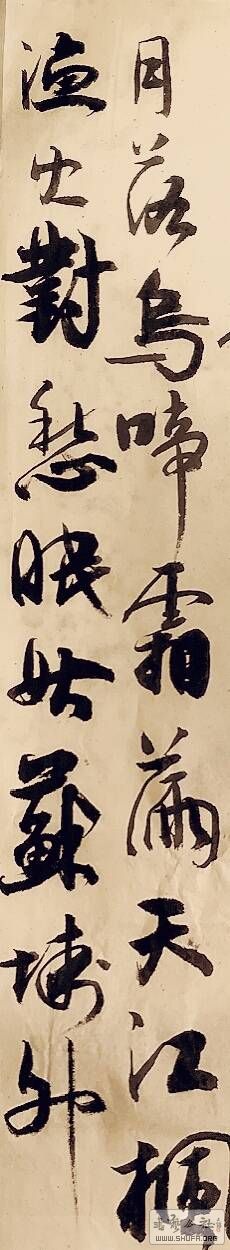 月落烏啼霜滿天江楓
漁火對愁眠姑蘇城外
WWW.SHUFA.ORG